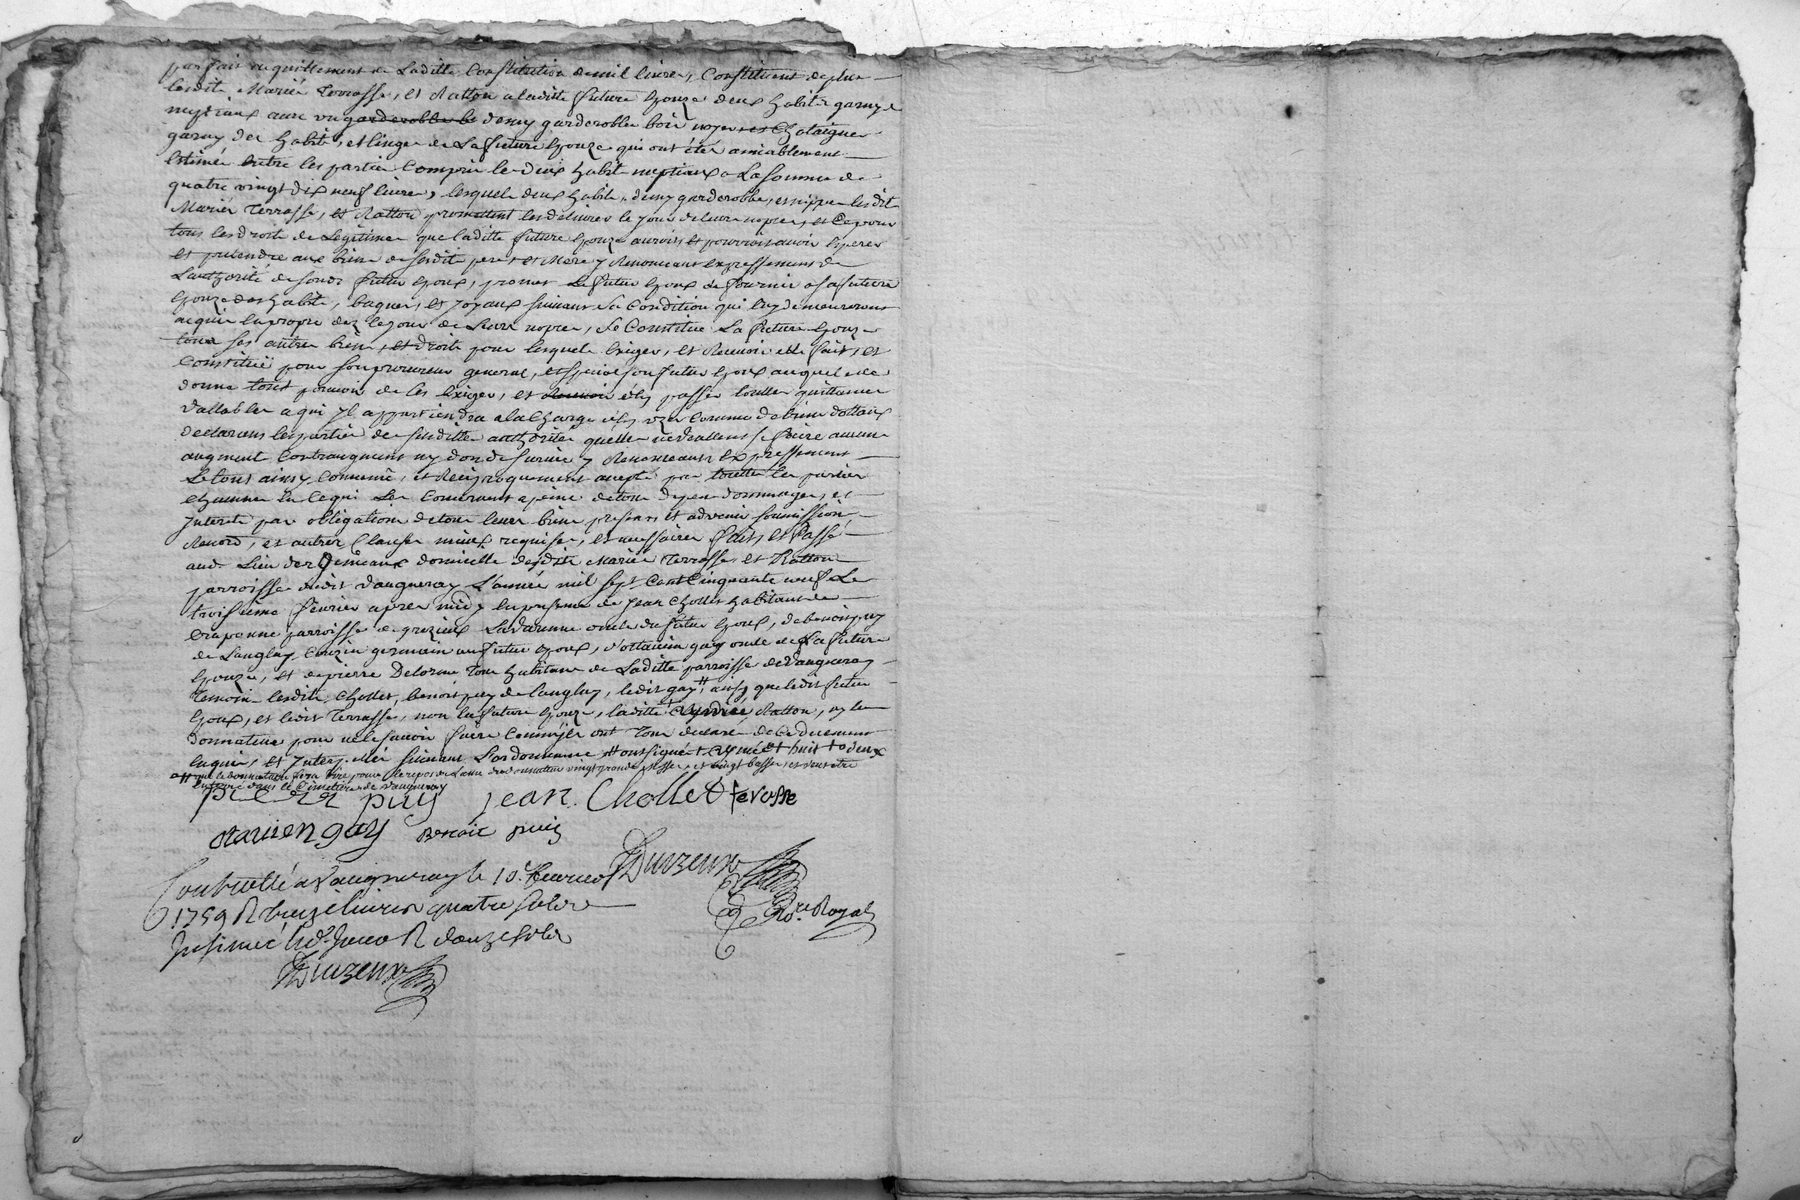 parfait acquittement de laditte Constitution de mil livres, Constituent de plus
lesdits Mariés Terrasse, et Ratton a laditte future Epouze deux habits garnys
nuptiaux avec un garderobbe de demy garderobbe bois noyer et Chataigner
garny des habits, et linges de La future Epouze qui ont étés amiablement
Estimés Entre les parties Compris les deux habits nuptiaux a La somme de
quatre vingt dix neuf livres, lesquels deux habits, demy garderobbe, et nippes lesdits
Mariés Terrasse, et Ratton promettent les délivrer le jour de leurs nopces, et Ce pour
tous les droits de Légitime que laditte future Epouze auroit et pourroit avoir Esperer
et pretendre aux biens de sesdits pere et Mere y Renonceant expressement de
L'authorité de sondt futur Epoux, promet Le futur Epoux de fournir a sa future
Epouze des habits, bagues, et Joyaux suivant sa Condition qui luy demeureront
acquis en propre dez le jour de Leurs nopces, Se Constitue La future Epouze
tous ses autres biens, et droits pour lesquels Exiger, et Recevoir elle fait, et
Constitue pour son procureur general, et special son futur Epoux auquel elle
donne tout pouvoir de les Exiger, et Recevoir d'en passer toutes quittances
vallables a qui Il appartiendra a la Charge d'en uzer Comme de biens dottaux
declarant les parties de susditte authorité qu'elles ne veullent se faire aucun
augment Contraugment ny don de survie y Renonceants Expressement
Le tout ainsy Convenu, et Réciproquement accepté par touttes les parties
Chacune En Ce qui Les Concernent a peine de tous depens dommages, et
Interets par obligations de tous leurs biens presents et advenir soumissions
Renon, et autres Clauses mieux requises, et necessaires fait, et Passé
audt Lieu des Jumeaux domicille desdits Mariés Terrasse et Ratton
parroisse dudit Vaugneray L'année mil sept Cent Cinquante neuf Le
troisieme février apres midy En presence de Jean Chollet habitant de
Craponne parroisse de grezieux Lavarenne oncle du futur Epoux, de benoit puy
de Langlay Cousin germain au futur Epoux, d'ottavien gay oncle de La future
Epouze, et de pierre Delorme Tous habitans de Laditte parroisse de Vaugneray
Temoins lesdits Chollet, benoit puy de Langlay, ledit gay, ainsy que ledit futur
Epoux, et ledit Terrasse, non la future Epouze, laditte Aymée Ratton, ny le
donnateur pour ne le savoir faire Comm'ils ont Tous declaré de Ce duement
enquis, et Interpellés suivant L'ordonnance ont signé + Aymée et huit + deux
# que le donnataire fera dire pour le repos de L'ame du donnateur vingt grandes Messes, et vingt basses, et d'une être
Enterré dans le Cimetiere de Vaugneray
pierre puy jean. Chollet terasse
otavien gay Benoit puis
Controllé a Vaugneray le 10e fevrier Duvzeux
1759 R treize livres quatre sols Nore Royal
Insinué led. Jour R douze sols
Duvzeux